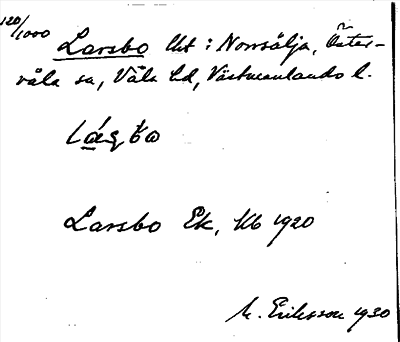 120/1000
Larsbo Ut : Norrsälja, Öster-
våla sn, Våla hd, Västmanlands l.
Larsbo Ek, Kb 1920
M. Eriksson 1930